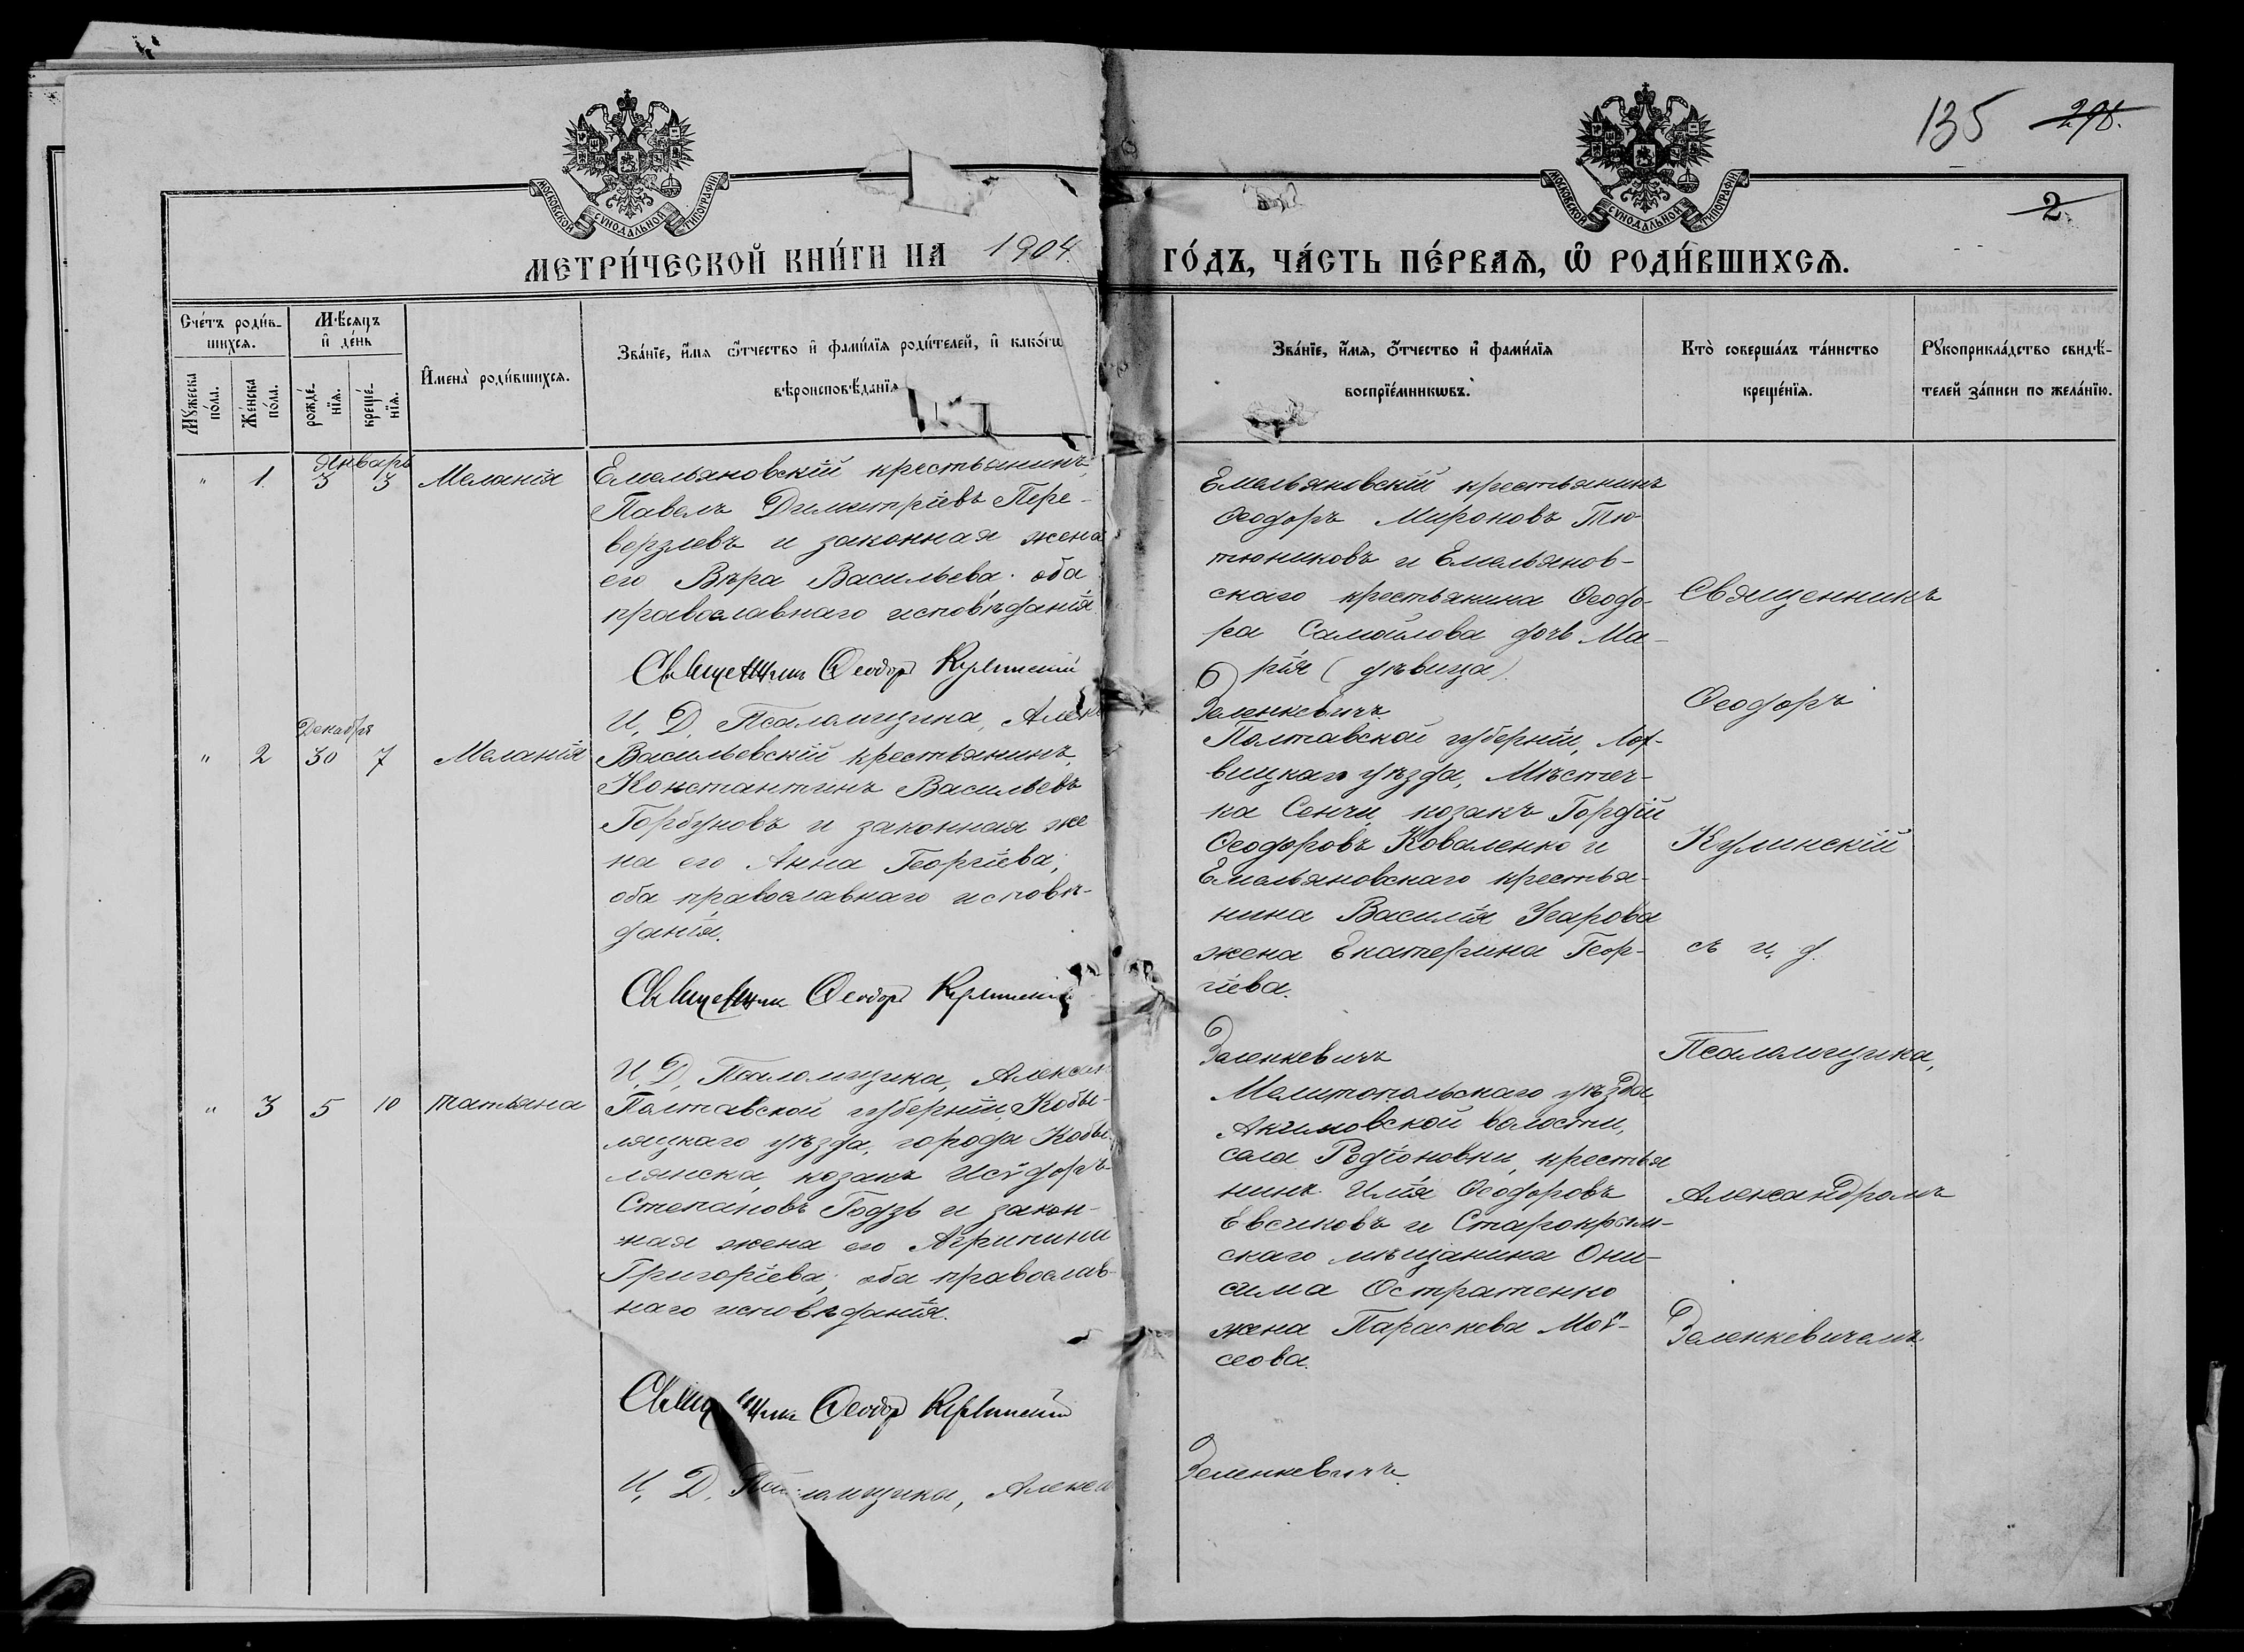 135 298.
МОСКОВСКОЙ СѴНОДАЛЬНОЙ ТИПОГРАФІИ
МОСКОВСКОЙ СѴНОДАЛЬНОЙ ТИПОГРАФІИ
2.
МЕТРИ́ЧЕСКОЙ КНИ́ГИ НА 1904. ГО́ДЪ, ЧА́СТЬ ПЕ́РВАѦ, Ѡ҆ РОДИ́ВШИХСѦ.
Сче́тъ роди́в-
шихсѧ.
Мꙋ́жеска по́ла.
Же́нска по́ла.
Мѣ́сѧцъ
и҆ де́нь
рожде́-
нїѧ.
креще́-
нїѧ.
И҆мена̀ роди́вшихсѧ.
Зва́нїе, и҆́мѧ ѻ҆́тчество и҆ фами́лїѧ роди́телей, и҆ како́гѡ
вѣроисповѣ́данїѧ
Зва́нїе, и҆́мѧ, ѻ҆́тчество и҆ фами́лїѧ
воспрїе́мникѡвъ.
Кто̀ соверша́лъ та́инство
креще́нїѧ.
Рꙋкоприкла́дство свидѣ́-
телей за́писи по жела́нїю.
Январь
" 1. 3 3 Меланія
Емельяновскій крестьянинъ,
Павелъ Димитріевъ Пере-
верзевъ и законная жена
его Вѣра Васильева. оба
православнаго исповѣданія.
Священникъ Ѳеодоръ Кулинскій
И. Д. Псаломщика, Алекс
Емельяновскій крестьянинъ
Ѳеодоръ Мироновъ Тю
тюниковъ и Емельянов-
скаго крестьянина Ѳеодо-
ра Самойлова дочь Ма-
рія (дѣвица).
Зеленкевичъ.
Декабрь
" 2 30 7 Меланія
Васильевскій крестьянинъ,
Константинъ Васильевъ
Горбуновъ и законная же
на его Анна Георгіева;
оба православнаго исповѣ-
данія.
Священникъ Ѳеодоръ Кулинскій
И. Д. Псаломщика, Алексан
Полтавской губерніи, Лох-
вицкаго уѣзда, Мѣстеч-
ка Сенчи, козакъ Гордій
Ѳеодоровъ Коваленко и
Емельяновскаго крестья-
нина Василія Угарова
жена Екатерина Геор-
гіева.
Зеленкевичъ
" 3 5 10 Татьяна
Полтавской губерніи, Кобы-
ляцкаго уѣзда, города Кобы-
лянска, козакъ Исѵдоръ
Степановъ Годзь и закон-
ная жена его Агрипина
Григоріева; оба православ-
наго исповѣданія.
Священникъ Ѳеодоръ Кулинскій
И. Д. Псаломщика, Алекса
Мелитопольскаго уѣзда,
Акимовской волости,
села Родіоновки, крестья
нинъ Илія Ѳеодоровъ
Евсиковъ и Старокрым-
скаго мѣщанина Они-
сима Остратенко
жена Параскева Моѵ-
сеова.
Зеленкевичъ.
Священникъ
Ѳеодоръ
Кулинскій
съ и. д.
Псаломщика,
Александромъ
Зеленкевичемъ.